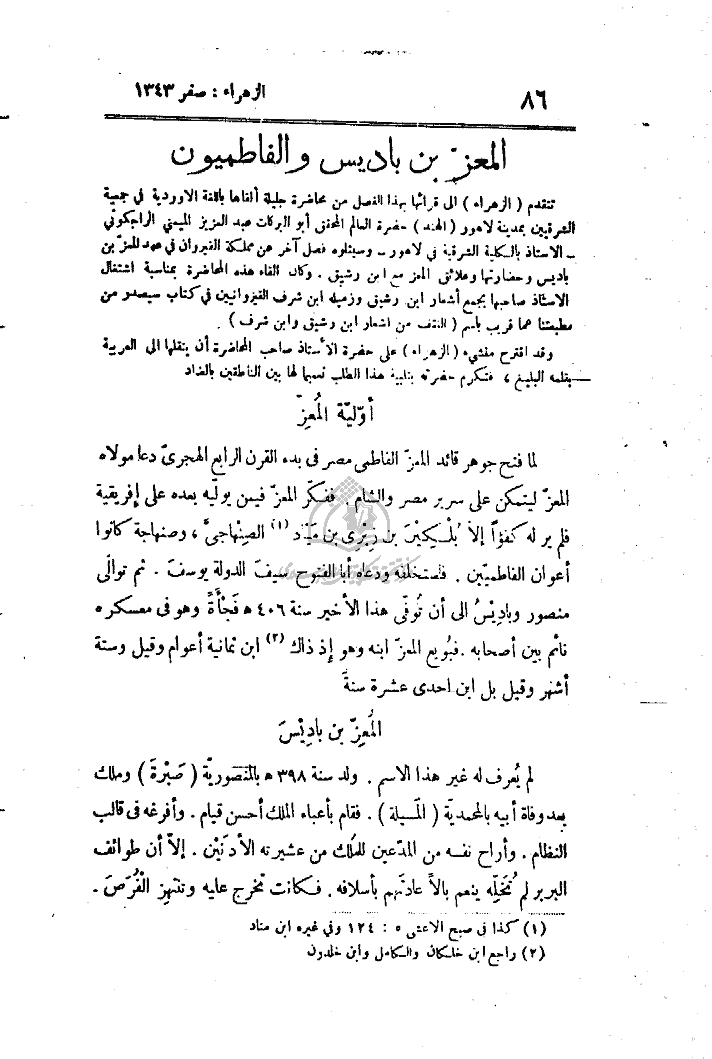 ٨٦
الزهراء : صفر ١٣٤٣
المعزّ بن باديس والفاطميون
تتقدم ( الزهراء ) الى قرائها بهذا الفصل من محاضرة جليلة ألقاها باللغة الاوردية في جمعية
الشرقيين بمدينة لاهور ( الهند ) حضرة العالم المحقق أبو البركات عبد العزيز الميمني الراجكوتي
ــ الاستاذ بالكلية الشرقية في لاهور ــ وسيتلوه فصل آخر عن مملكة القيروان في عهد المعز بن
باديس وحضارتها وعلائق المعز مع ابن رشيق . وكان القاء هذه المحاضرة بمناسبة اشتغال
الاستاذ صاحبها بجمع أشعار ابن رشيق وزميله ابن شرف القيروانيين في كتاب سيصدر من
مطبعتنا عما قريب باسم ( النتف من اشعار ابن رشيق وابن شرف )
وقد اقترح منشىء ( الزهراء ) على حضرة الأستاذ صاحب المحاضرة أن ينقلها الى العربية
بقلمه البليغ ، فتكرم حضرته بتلبية هذا الطلب تعميما لها بين الناطقين بالضاد
أوّلية المُعِزّ
لما فتح جوهر قائد المعزّ الفاطمى مصر فى بدء القرن الرابع الهجرىّ دعا مولاه
المعزّ ليتمكن على سرير مصر والشام . ففكّر المعزّ فيمن يولّيه بعده على إفريقية
فلم ير له كفؤاً إلاّ بُلُكِّيْنَ بن زِيْرِى بن مَيّاد (١) الصِنْهاجىَّ ، وصنهاجة كانوا
أعوان الفاطميّين . فاستخلفه ودعاه أبا الفتوح سيفَ الدولة يوسفَ . ثم توالى
منصور وباديْسُ الى أن تُوفّى هذا الأخير سنة ٤٠٦ ه فَجْأةً وهو فى معسكره
نائم بين أصحابه . فبُويع المعزّ ابنه وهو إذ ذاك (٢) ابن ثمانية أعوام وقيل وستة
أشهر وقيل بل ابن احدى عشرة سنةً
المُعِزّ بن بادِيْسَ
لم يُعرف له غير هذا الاسم . ولد سنة ٣٩٨ ه بالمنصوريّة ( صَبْرَة ) وملك
بعد وفاة أبيه بالمحمديّة ( المَسِيلة ) . فقام بأعباء الملك أحسن قيام . وأفرغه فى قالب
النظام . وأراح نفسه من المدّعين للمُلك من عشيرته الأدنَيْن . إلاّ أن طوائف
البربر لم تُخَلِّه ينعم بالاً عادتهم بأسلافه . فكانت تخرج عليه وتنتهز الفُرَصَ .
(١) كذا في صبح الاعشى ٥ : ١٢٤ وفي غيره ابن مناد
(٢) راجع ابن خلكان والكامل وابن خلدون